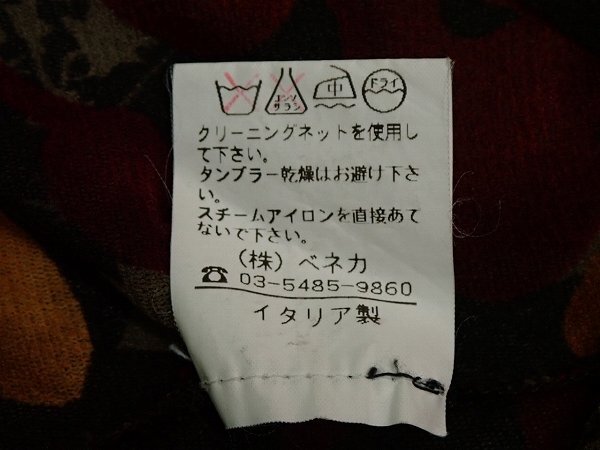 エンソ
サラシ
中
ドライ
クリーニングネットを使用し
て下さい。
タンブラー乾燥はお避け下さ
い。
スチームアイロンを直接あて
ないで下さい。
(株) ベネカ
☎ 03-5485-9860
イタリア製